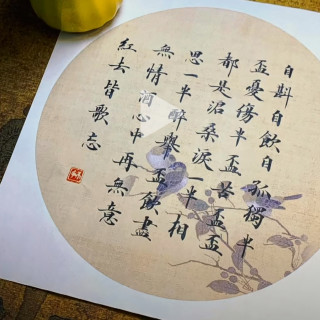 自斟自飲自孤獨半
盃憂傷半盃苦盃盃
都是滄桑淚一半相
思一半醉舉盃飲盡
無情酒心中再無意
紅皆歌忘